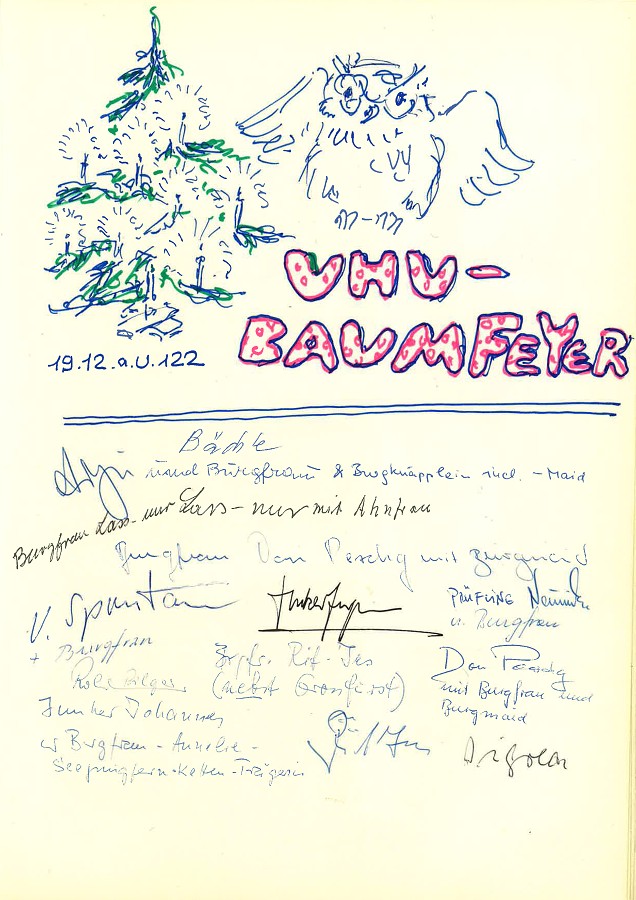 UHU-
BAUMFEYER
19.12.a.U.122
Bächle
und Burgfrau & Burgknäpplein incl. - Maid
Burgfrau Lass-nur Lass-nur mit Ahnfrau
Burgfrau Don Peschg mit Burgmaid
v. Spuntan
+ Burgfrau
Junker
PRÜFLING
u. Burgfrau
Brgfr. Rit-Ies
(nebst Grossfürst)
Don Peschg
mit Burgfrau und
Burgmaid
Junker Johannes
u Burgfrau - Annelie -
Seejungfern-Ketten-Trägerin